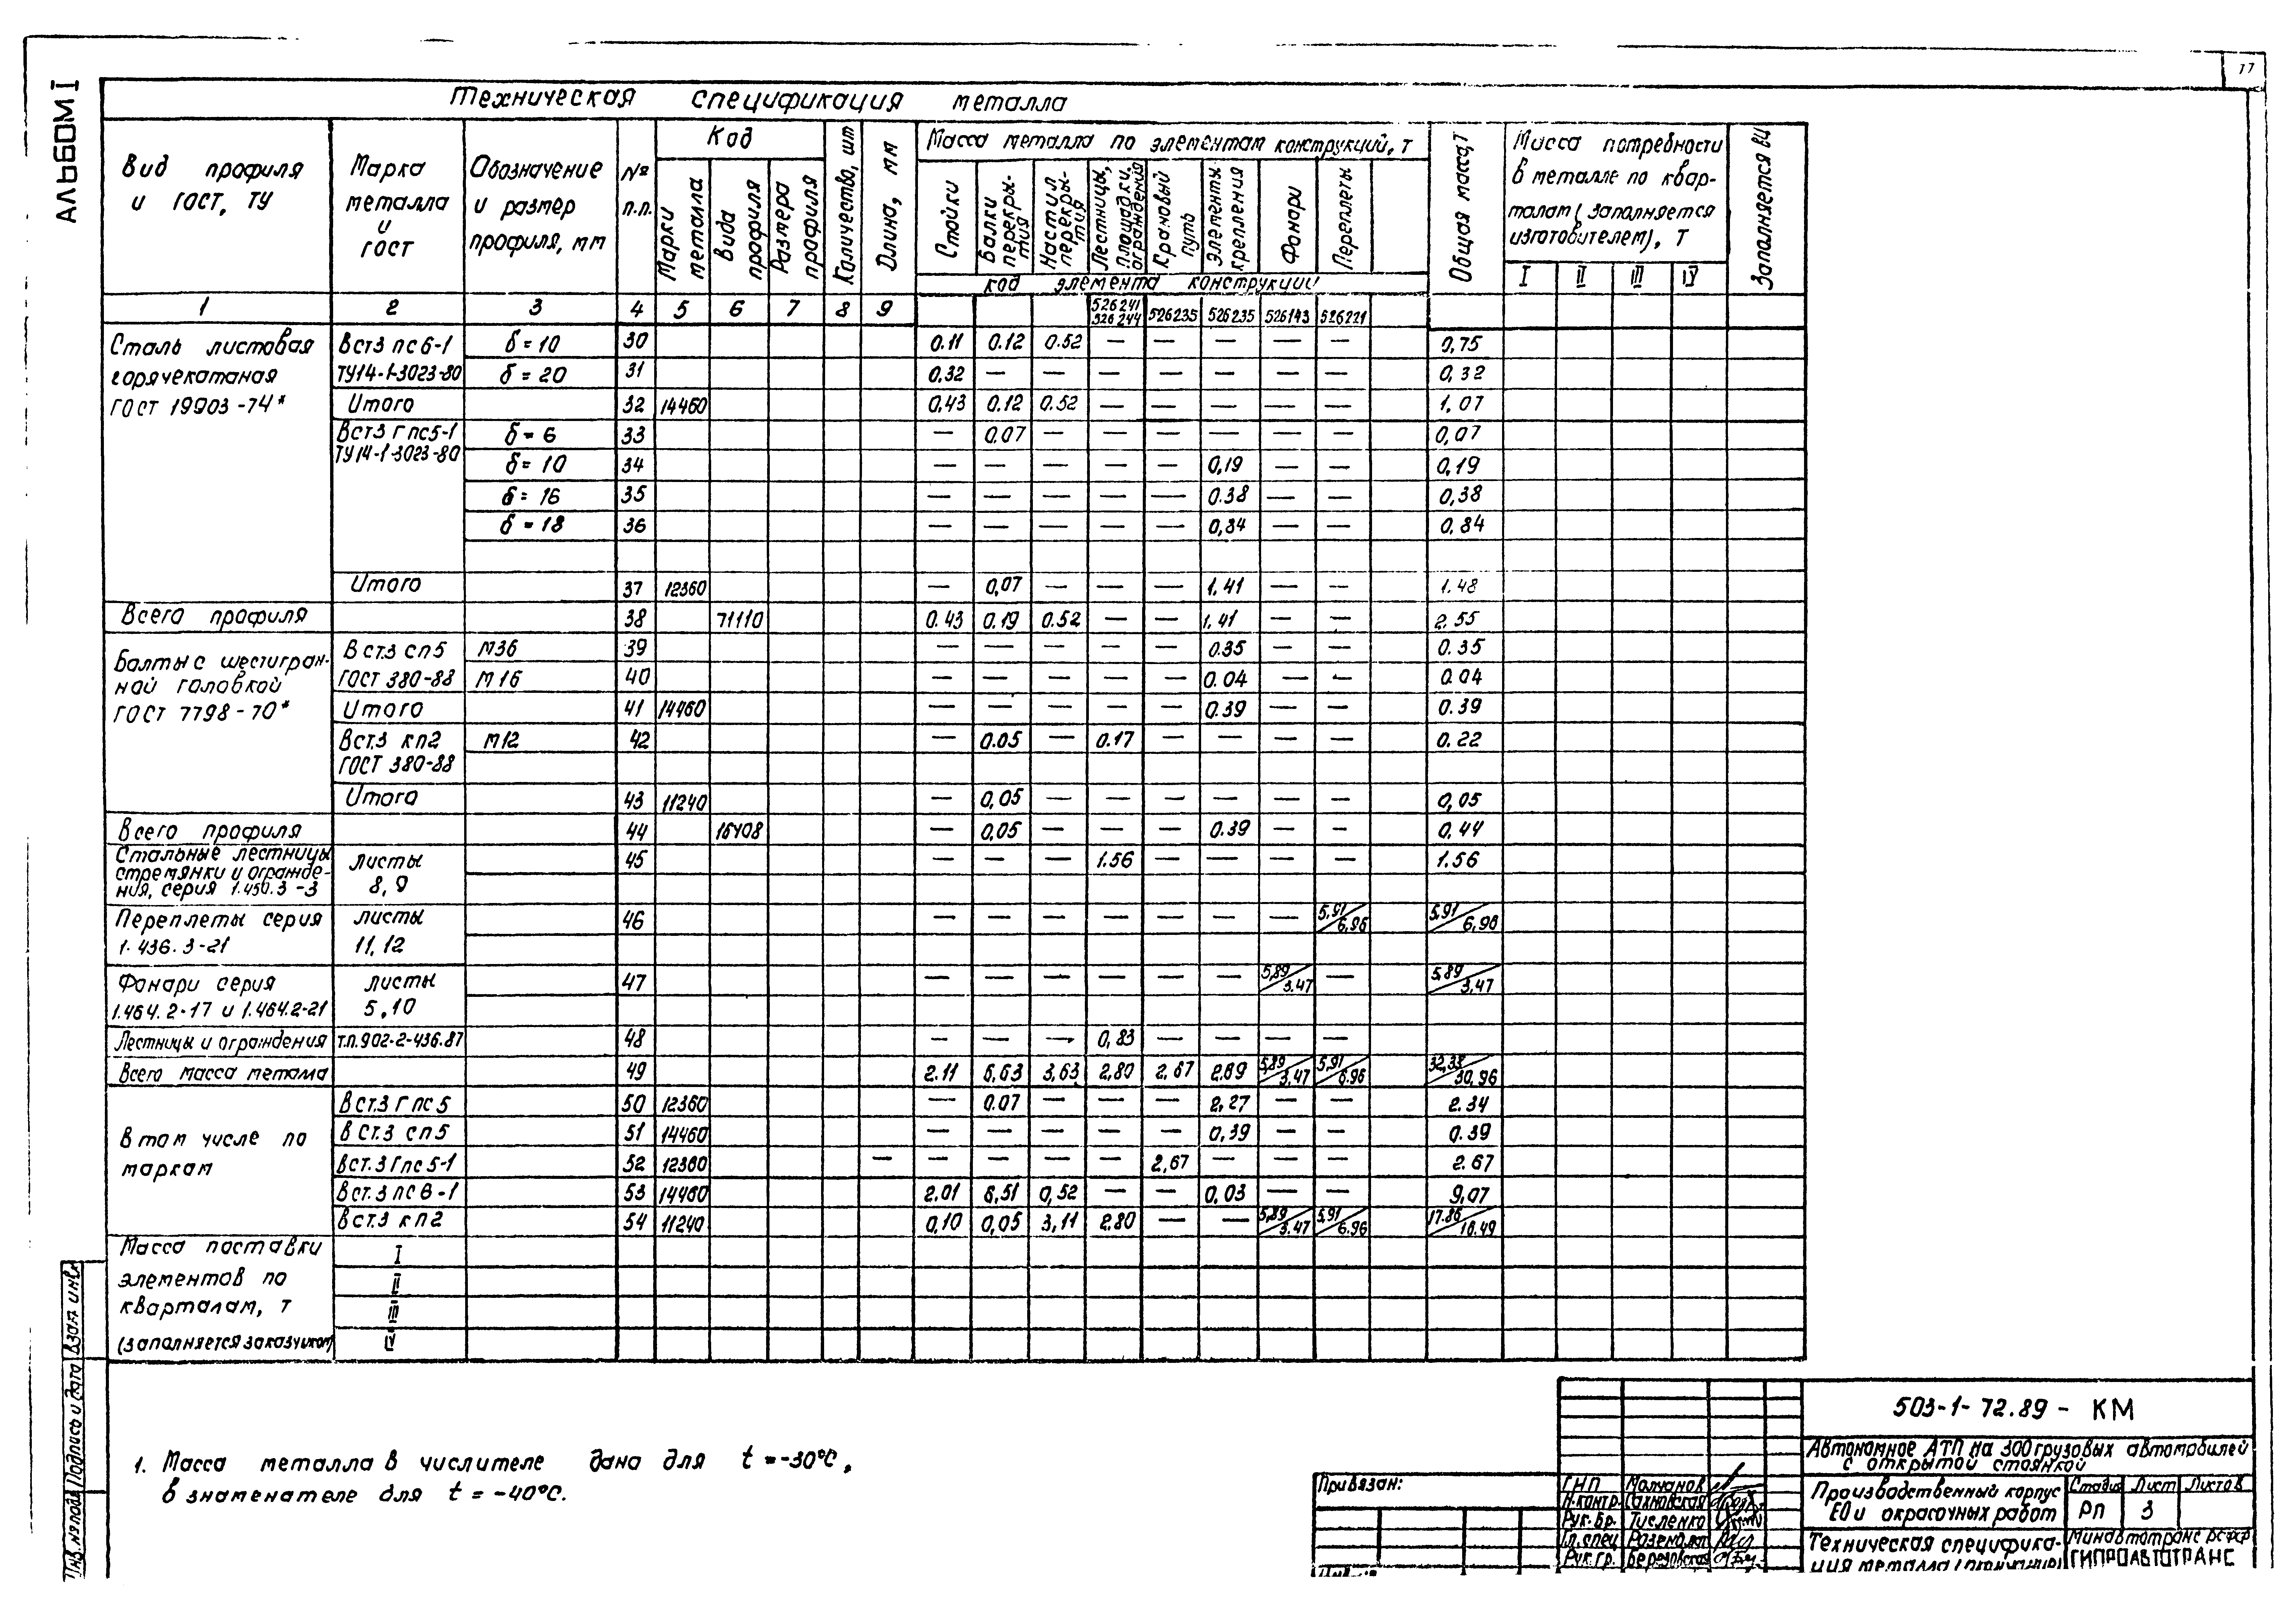 17
АЛЬБОМ I
Техническая спецификация металла
Вид профиля и ГОСТ, ТУ | Марка металла и ГОСТ | Обозначение и размер профиля, мм | №№ п.п. | Код | Количество, шт | Длина, мм | Масса металла по элементам конструкций, т | Общая масса, т | Масса потребности в металле по кварталам (заполняется изготовителем), т | Заполняется ВЦ
Марки металла | Вида профиля | Размера профиля | Стойки | Балки перекрытия | Настил перекрытия | Лестницы, площадки, ограждения | Крановый путь | Элементы крепления | Фонари | Переплеты | I | II | III | IV
код элемента конструкции
1 | 2 | 3 | 4 | 5 | 6 | 7 | 8 | 9 | 526241 526244 | 526235 | 526235 | 526143 | 526221
Сталь листовая горячекатаная ГОСТ 19903-74* | Вст3 пс6-1 ТУ14-1-3023-80 | δ=10 | 30 | 0.11 | 0.12 | 0.52 | — | — | — | — | — | 0,75
δ=20 | 31 | 0.32 | — | — | — | — | — | — | — | 0,32
Итого | 32 | 14460 | 0,43 | 0.12 | 0.52 | — | — | — | — | — | 1,07
Вст3 Гпс5-1 ТУ14-1-3023-80 | δ=6 | 33 | — | 0.07 | — | — | — | — | — | — | 0,07
δ=10 | 34 | — | — | — | — | — | 0,19 | — | — | 0,19
δ=16 | 35 | — | — | — | — | — | 0.38 | — | — | 0,38
δ=18 | 36 | — | — | — | — | — | 0,84 | — | — | 0,84
Итого | 37 | 12360 | — | 0,07 | — | — | — | 1.41 | — | — | 1.48
Всего профиля | 38 | 71110 | 0.43 | 0.19 | 0.52 | — | — | 1.41 | — | — | 2.55
Болты с шестигранной головкой ГОСТ 7798-70* | Вст.3 сп5 ГОСТ 380-88 | М36 | 39 | — | — | — | — | — | 0.35 | — | — | 0.35
М16 | 40 | — | — | — | — | — | 0.04 | — | — | 0.04
Итого | 41 | 14460 | — | — | — | — | — | 0.39 | — | — | 0.39
Вст.3 кп2 ГОСТ 380-88 | М12 | 42 | — | 0.05 | — | 0.17 | — | — | — | — | 0.22
Итого | 43 | 11240 | — | 0,05 | — | — | — | — | — | — | 0,05
Всего профиля | 44 | 16408 | — | 0,05 | — | — | — | 0.39 | — | — | 0,44
Стальные лестницы стремянки и ограждения, серия 1.450.3-3 | листы 8,9 | 45 | — | — | — | 1.56 | — | — | — | — | 1.56
Переплеты серия 1.436.3-21 | листы 11,12 | 46 | — | — | — | — | — | — | — | 5,91/6,96 | 5,91/6,96
Фонари серия 1.464.2-17 и 1.464.2-21 | листы 5,10 | 47 | — | — | — | — | — | — | 5,89/3.47 | — | 5,89/3,47
Лестницы и ограждения | т.п.902-2-436.87 | 48 | — | — | — | 0,83 | — | — | — | —
Всего масса металла | 49 | 2.11 | 6,63 | 3,63 | 2,80 | 2,67 | 2,69 | 5,89/3,47 | 5,91/6.96 | 32,33/30,96
В том числе по маркам | Вст.3 Гпс5 | 50 | 12360 | — | 0.07 | — | — | — | 2,27 | — | — | 2.34
Вст.3 сп5 | 51 | 14460 | — | — | — | — | — | 0,39 | — | — | 0.39
Вст.3 Гпс5-1 | 52 | 12360 | — | — | — | — | — | 2,67 | — | — | — | 2.67
Вст.3 пс6-1 | 53 | 14460 | 2.01 | 6,51 | 0,52 | — | — | 0,03 | — | — | 9,07
Вст.3 кп2 | 54 | 11240 | 0,10 | 0,05 | 3,11 | 2.80 | — | — | 5,89/3.47 | 5,91/6.96 | 17.86/16,49
Масса поставки элементов по кварталам, т (заполняется заказчиком) | I
II
III
IV
1. Масса металла в числителе дана для t=-30°С,
в знаменателе для t=-40°С.
Инв.№ подл. Подпись и дата Взам инв.
Привязан:
ГНП Молчанов
Н.контр. Сахновская
Рук.бр. Тисленко
Гл.спец
Рук.гр. Березовская
503-1-72.89-КМ
Автономное АТП на 300 грузовых автомобилей
с открытой стоянкой
Производственный корпус
ЕО и окрасочных работ
Стадия Лист Листов
РП 3
Техническая специфика-
ция металла (окончание)
Минавтотранс РСФСР
ГИПРОАВТОТРАНС